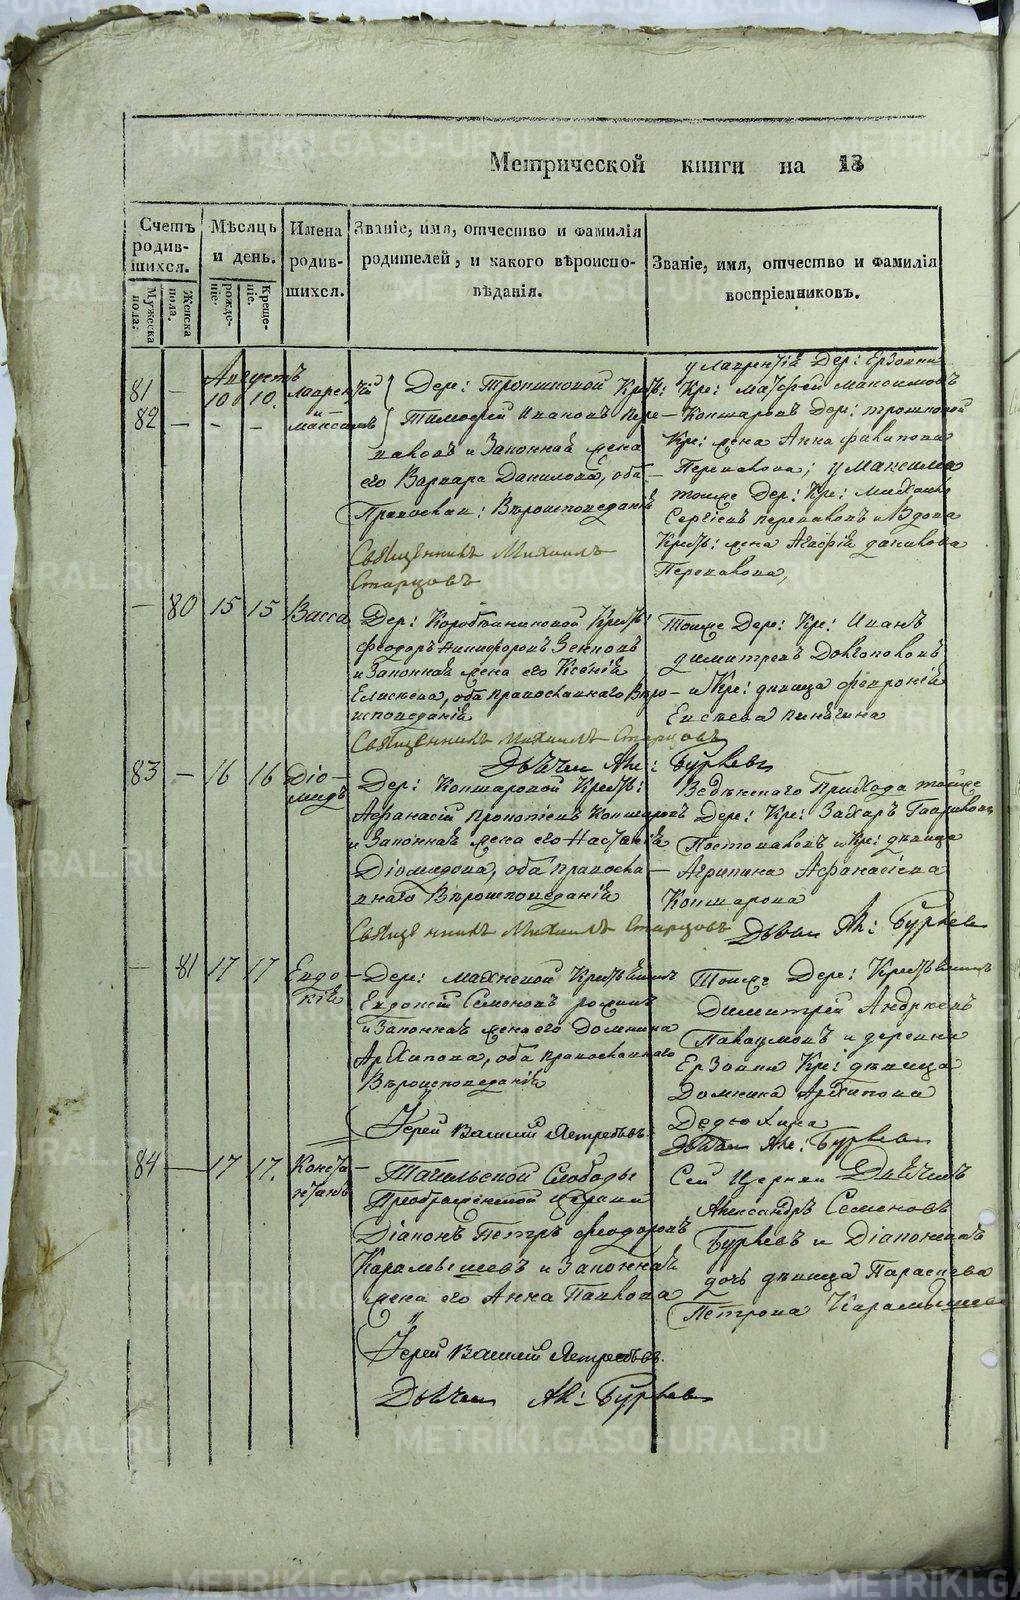 Метрической книги на 18
Счетъ родив-шихся.
Мѣсяцъ и день.
Имена родив-шихся.
Званіе, имя, отчество и фамилія
родителей, и какого вѣроиспо-
вѣданія.
Званіе, имя, отчество и фамилія
воспріемниковъ.
Мужеска пола.
Женска пола.
рожде-ніе.
Креще-ніе.
Августъ
81 — 10 10. Лаврентій
и
82 — — — Максимъ
Дере: Трошковой Крть:
Тимофей Ивановъ Пере-
и Законная жена
его Варвара Данилова, оба
Православ: Вѣроисповеданія
Священникъ Михаилъ
Старцовъ
у Лаврентія Дер: Ерзовки
Кре: Матфей Максимовъ
Дер: Трошковой
Кре: жена Анна Филипова
у Максима
тоиже Дер: Кре: Михаилъ
Сергіевъ и Вдова
Крть: жена Агафія Данилова
— 80 15 15 Васса
Дер: Коробейниковой Крть:
Феодоръ Никифоровъ Зенковъ
и Законная жена его Ксенія
Елисеева, оба Православнаго Вѣро-
исповеданія
Священникъ Михаилъ Старцовъ
Дьячек Ал: Бурлевъ
Тоиже Дере: Кре: Иванъ
Димитревъ Долгополовъ
и Кре: дѣвица Февронія
Евсеева Пинягина
83 — 16 16 Діо-
мидъ
Дер: Кошаровой Крть:
Афанасій Прокопіевъ Кошаровъ
и Законная жена его Настасія
Діомидова, оба Правосла-
внаго Вѣроисповеданія
Священникъ Михаилъ Старцовъ
Прихода тоиже
Дере: Кре: Захаръ Гавриловъ
Постоваловъ и Кре: дѣвица
Агрипина Афанасіева
Кошарова
Дьячек Ал: Бурлев
— 81 17 17 Евдо-
кія
Дер: Махневой
Евдокий Семеновъ
и Законная жена его Домнина
Архипова, оба Православнаго
Вѣроисповеданія
Іерей Василий Ястребовъ.
Тоиже Дере:
Димитрий Андреевъ
и деревни
Ерзовки Кре: дѣвица
Домника Архипова
Дедюхина
Дьячек Ал: Бурлев
84 — 17 17. Конста-
нтинъ
Тагильской Слободы
Преображенской Церкви
Діаконъ Петръ Феодоровъ
Карамышевъ и Законная
жена его Анна Павлова
Іерей Василий Ястребовъ.
Дьячек Ал: Бурлев
Сей Церкви Дьячекъ
Александръ Семеновъ
Бурлевъ и Діаконская
дочь дѣвица Параскева
Петрова Карамышева